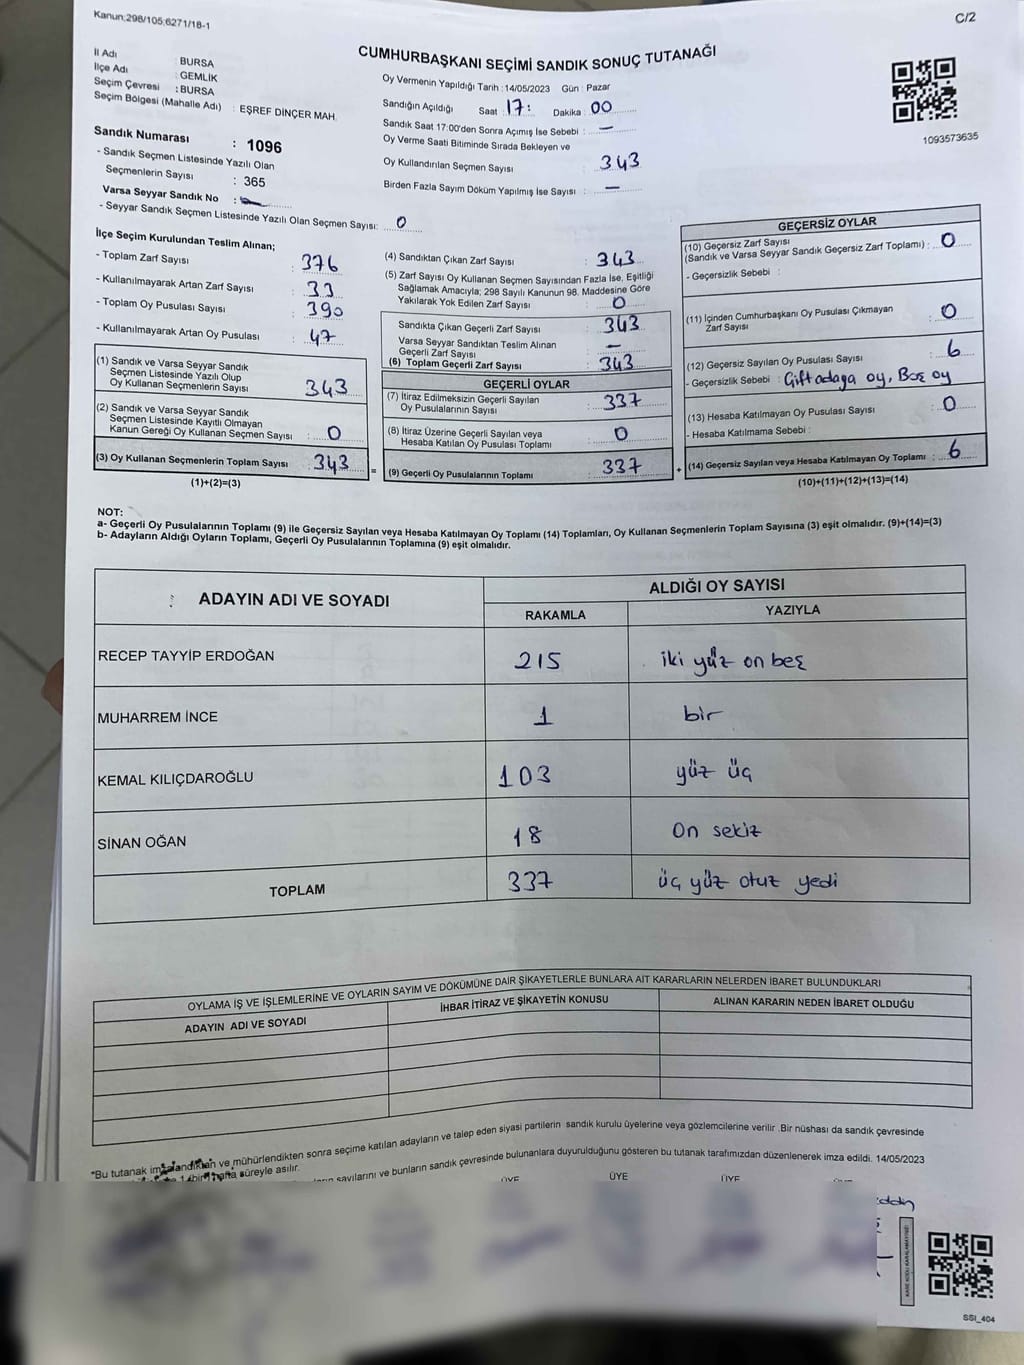 Kanun:298/105;6271/18-1
C/2
CUMHURBAŞKANI SEÇİMİ SANDIK SONUÇ TUTANAĞI
İl Adı : BURSA
İlçe Adı : GEMLİK
Seçim Çevresi : BURSA
Seçim Bölgesi (Mahalle Adı) : EŞREF DİNÇER MAH.
Sandık Numarası : 1096
- Sandık Seçmen Listesinde Yazılı Olan
Seçmenlerin Sayısı : 365
Varsa Seyyar Sandık No :
- Seyyar Sandık Seçmen Listesinde Yazılı Olan Seçmen Sayısı: 0
Oy Vermenin Yapıldığı Tarih : 14/05/2023 Gün : Pazar
Sandığın Açıldığı Saat : 17: Dakika : 00
Sandık Saat 17:00'den Sonra Açımış İse Sebebi : —
Oy Verme Saati Bitiminde Sırada Bekleyen ve
Oy Kullandırılan Seçmen Sayısı 343
Birden Fazla Sayım Döküm Yapılmış İse Sayısı : —
1093573635
İlçe Seçim Kurulundan Teslim Alınan;
- Toplam Zarf Sayısı : 376
- Kullanılmayarak Artan Zarf Sayısı : 33
- Toplam Oy Pusulası Sayısı : 390
- Kullanılmayarak Artan Oy Pusulası : 47
(1) Sandık ve Varsa Seyyar Sandık
Seçmen Listesinde Yazılı Olup
Oy Kullanan Seçmenlerin Sayısı : 343
(2) Sandık ve Varsa Seyyar Sandık
Seçmen Listesinde Kayıtlı Olmayan
Kanun Gereği Oy Kullanan Seçmen Sayısı : 0
(3) Oy Kullanan Seçmenlerin Toplam Sayısı : 343
(1)+(2)=(3)
=
(4) Sandıktan Çıkan Zarf Sayısı : 343
(5) Zarf Sayısı Oy Kullanan Seçmen Sayısından Fazla İse, Eşitliği
Sağlamak Amacıyla; 298 Sayılı Kanunun 98. Maddesine Göre
Yakılarak Yok Edilen Zarf Sayısı : 0
Sandıkta Çıkan Geçerli Zarf Sayısı : 343
Varsa Seyyar Sandıktan Teslim Alınan
Geçerli Zarf Sayısı : —
(6) Toplam Geçerli Zarf Sayısı : 343
GEÇERLİ OYLAR
(7) İtiraz Edilmeksizin Geçerli Sayılan
Oy Pusulalarının Sayısı : 337
(8) İtiraz Üzerine Geçerli Sayılan veya
Hesaba Katılan Oy Pusulası Toplamı : 0
(9) Geçerli Oy Pusulalarının Toplamı : 337
+
GEÇERSİZ OYLAR
(10) Geçersiz Zarf Sayısı
(Sandık ve Varsa Seyyar Sandık Geçersiz Zarf Toplamı) : 0
- Geçersizlik Sebebi :
(11) İçinden Cumhurbaşkanı Oy Pusulası Çıkmayan
Zarf Sayısı : 0
(12) Geçersiz Sayılan Oy Pusulası Sayısı : 6
- Geçersizlik Sebebi : Çift adaya oy, Boş oy
(13) Hesaba Katılmayan Oy Pusulası Sayısı : 0
- Hesaba Katılmama Sebebi :
(14) Geçersiz Sayılan veya Hesaba Katılmayan Oy Toplamı : 6
(10)+(11)+(12)+(13)=(14)
NOT:
a- Geçerli Oy Pusulalarının Toplamı (9) ile Geçersiz Sayılan veya Hesaba Katılmayan Oy Toplamı (14) Toplamları, Oy Kullanan Seçmenlerin Toplam Sayısına (3) eşit olmalıdır. (9)+(14)=(3)
b- Adayların Aldığı Oyların Toplamı, Geçerli Oy Pusulalarının Toplamına (9) eşit olmalıdır.
ADAYIN ADI VE SOYADI
ALDIĞI OY SAYISI
RAKAMLA YAZIYLA
RECEP TAYYİP ERDOĞAN 215 iki yüz on beş
MUHARREM İNCE 1 bir
KEMAL KILIÇDAROĞLU 103 yüz üç
SİNAN OĞAN 18 On sekiz
TOPLAM 337 üç yüz otuz yedi
OYLAMA İŞ VE İŞLEMLERİNE VE OYLARIN SAYIM VE DÖKÜMÜNE DAİR ŞİKAYETLERLE BUNLARA AİT KARARLARIN NELERDEN İBARET BULUNDUKLARI
ADAYIN ADI VE SOYADI İHBAR İTİRAZ VE ŞİKAYETİN KONUSU ALINAN KARARIN NEDEN İBARET OLDUĞU
*Bu tutanak imzalandıktan ve mühürlendikten sonra seçime katılan adayların ve talep eden siyasi partilerin sandık kurulu üyelerine veya gözlemcilerine verilir .Bir nüshası da sandık çevresinde
1 bir hafta süreyle asılır.
sayılarını ve bunların sandık çevresinde bulunanlara duyurulduğunu gösteren bu tutanak tarafımızdan düzenlenerek imza edildi. 14/05/2023
ÜYE ÜYE ÜYE
SSI_404